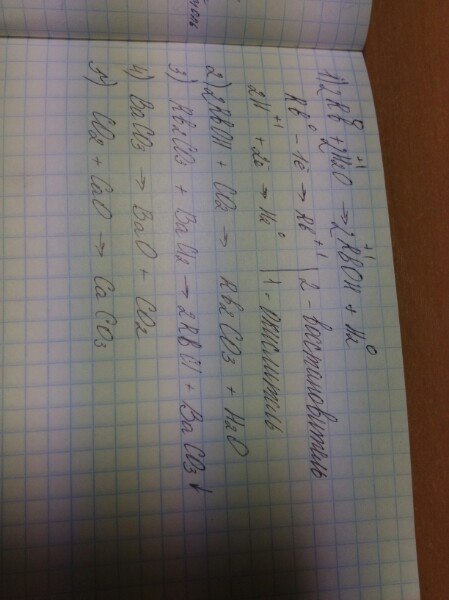 1) 2Rb⁰ + 2H₂⁺¹O → 2Rb⁺¹OH + H₂⁰
Rb⁰ - 1ē → Rb⁺¹ | 2 - восстановитель
2H⁺¹ + 2ē → H₂⁰ | 1 - окислитель
2) 2RbOH + CO₂ → Rb₂CO₃ + H₂O
3) Rb₂CO₃ + BaCl₂ → 2RbCl + BaCO₃↓
4) BaCO₃ → BaO + CO₂
5) CO₂ + CaO → CaCO₃